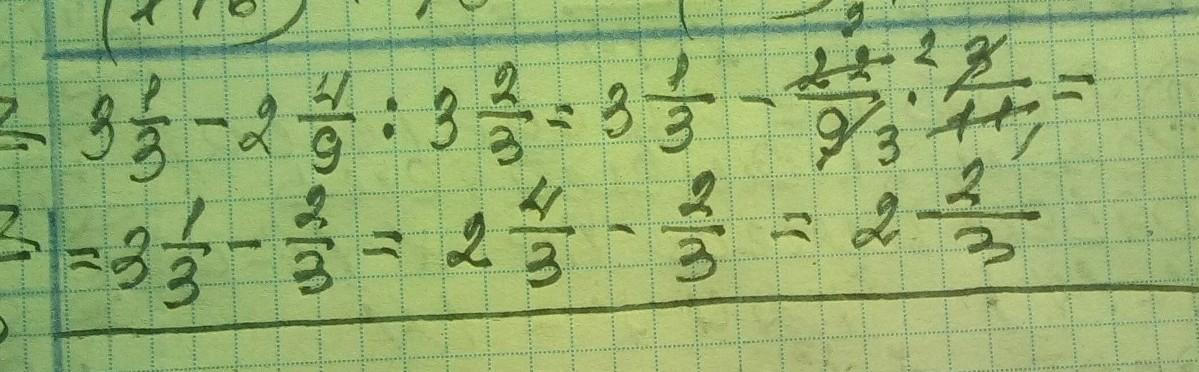 3 1/3 - 2 4/9 : 3 2/3 = 3 1/3 - 22/9 · 3/11 =
= 3 1/3 - 2/3 = 2 4/3 - 2/3 = 2 2/3